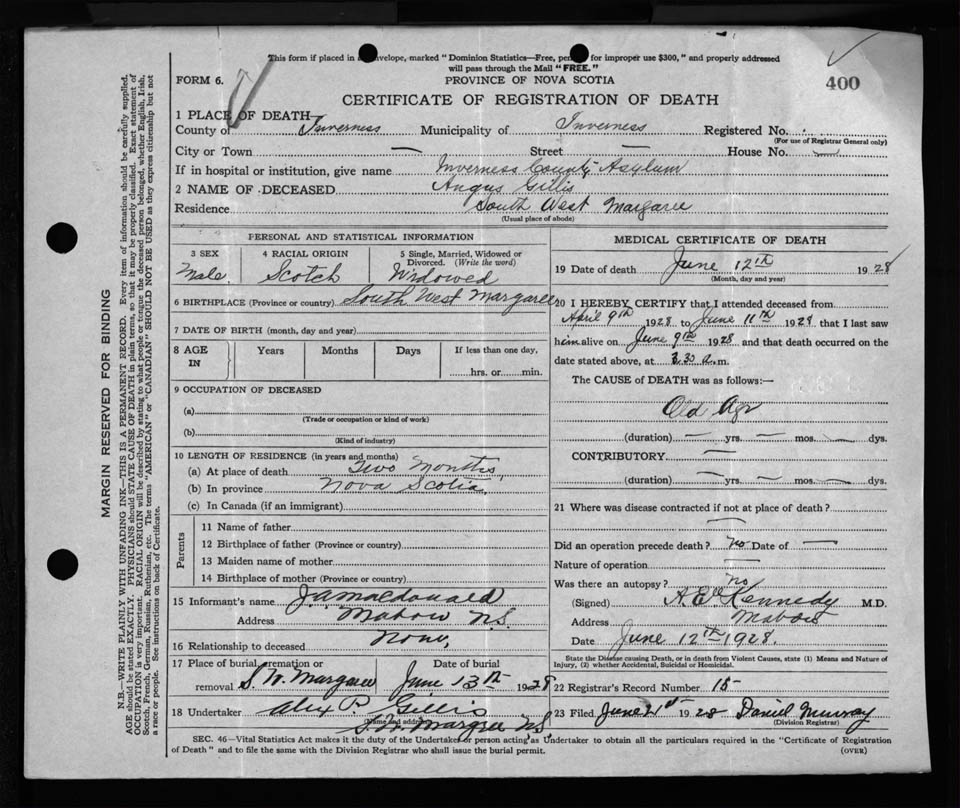 This form if placed in an envelope, marked "Dominion Statistics—Free, penalty for improper use $300," and properly addressed
will pass through the Mail "FREE."
FORM 6.
PROVINCE OF NOVA SCOTIA
400
CERTIFICATE OF REGISTRATION OF DEATH
1 PLACE OF DEATH
County of Inverness Municipality of Inverness Registered No.
(For use of Registrar General only)
City or Town — Street — House No. —
If in hospital or institution, give name Inverness County Asylum
2 NAME OF DECEASED Angus Gillis
Residence South West Margaree
(Usual place of abode)
PERSONAL AND STATISTICAL INFORMATION
3 SEX 4 RACIAL ORIGIN 5 Single, Married, Widowed or
Divorced. (Write the word)
Male Scotch Widowed
6 BIRTHPLACE (Province or country) South West Margaree
7 DATE OF BIRTH (month, day and year)
8 AGE IN Years Months Days If less than one day,
hrs. or min.
9 OCCUPATION OF DECEASED
(a)
(Trade or occupation or kind of work)
(b)
(Kind of industry)
10 LENGTH OF RESIDENCE (in years and months)
(a) At place of death Two Months
(b) In province Nova Scotia
(c) In Canada (if an immigrant)
Parents
11 Name of father
12 Birthplace of father (Province or country)
13 Maiden name of mother
14 Birthplace of mother (Province or country)
15 Informant's name J.A. Macdonald
Address Mabou N.S.
16 Relationship to deceased None
17 Place of burial, cremation or Date of burial
removal S.W. Margaree June 13th 1928
18 Undertaker Alex P. Gillis
(Name and address)
S.W. Margaree N.S.
MEDICAL CERTIFICATE OF DEATH
19 Date of death June 12th 1928
(Month, day and year)
20 I HEREBY CERTIFY that I attended deceased from
April 9th 1928 to June 11th 1928 that I last saw
him alive on June 9th 1928 and that death occurred on the
date stated above, at 3.30 a.m.
The CAUSE of DEATH was as follows:—
Old Age
(duration) — yrs. — mos. — dys.
CONTRIBUTORY —
(duration) — yrs. — mos. — dys.
21 Where was disease contracted if not at place of death?
—
Did an operation precede death? no Date of —
Nature of operation —
Was there an autopsy? no
(Signed) Kennedy M.D.
Address Mabou
Date June 12th 1928.
State the Disease causing Death, or in death from Violent Causes, state (1) Means and Nature of
Injury, (2) whether Accidental, Suicidal or Homicidal.
22 Registrar's Record Number 15
23 Filed June 21st 1928 Daniel Murray
(Division Registrar)
SEC. 46—Vital Statistics Act makes it the duty of the Undertaker or person acting as Undertaker to obtain all the particulars required in the "Certificate of Registration
of Death" and to file the same with the Division Registrar who shall issue the burial permit.
(OVER)
MARGIN RESERVED FOR BINDING
N.B.—WRITE PLAINLY WITH UNFADING INK—THIS IS A PERMANENT RECORD. Every item of information should be carefully supplied.
AGE should be stated EXACTLY. PHYSICIANS should STATE CAUSE OF DEATH in plain terms, so that it may be properly classified. Exact statement of
OCCUPATION is very important. RACIAL ORIGIN will be described by stating to what people or tongue the deceased person belonged, whether English, Irish,
Scotch, French, German, Russian, Ruthenian, etc. The terms "AMERICAN" or "CANADIAN" SHOULD NOT BE USED as they express citizenship but not
a race or people. See instructions on back of Certificate.